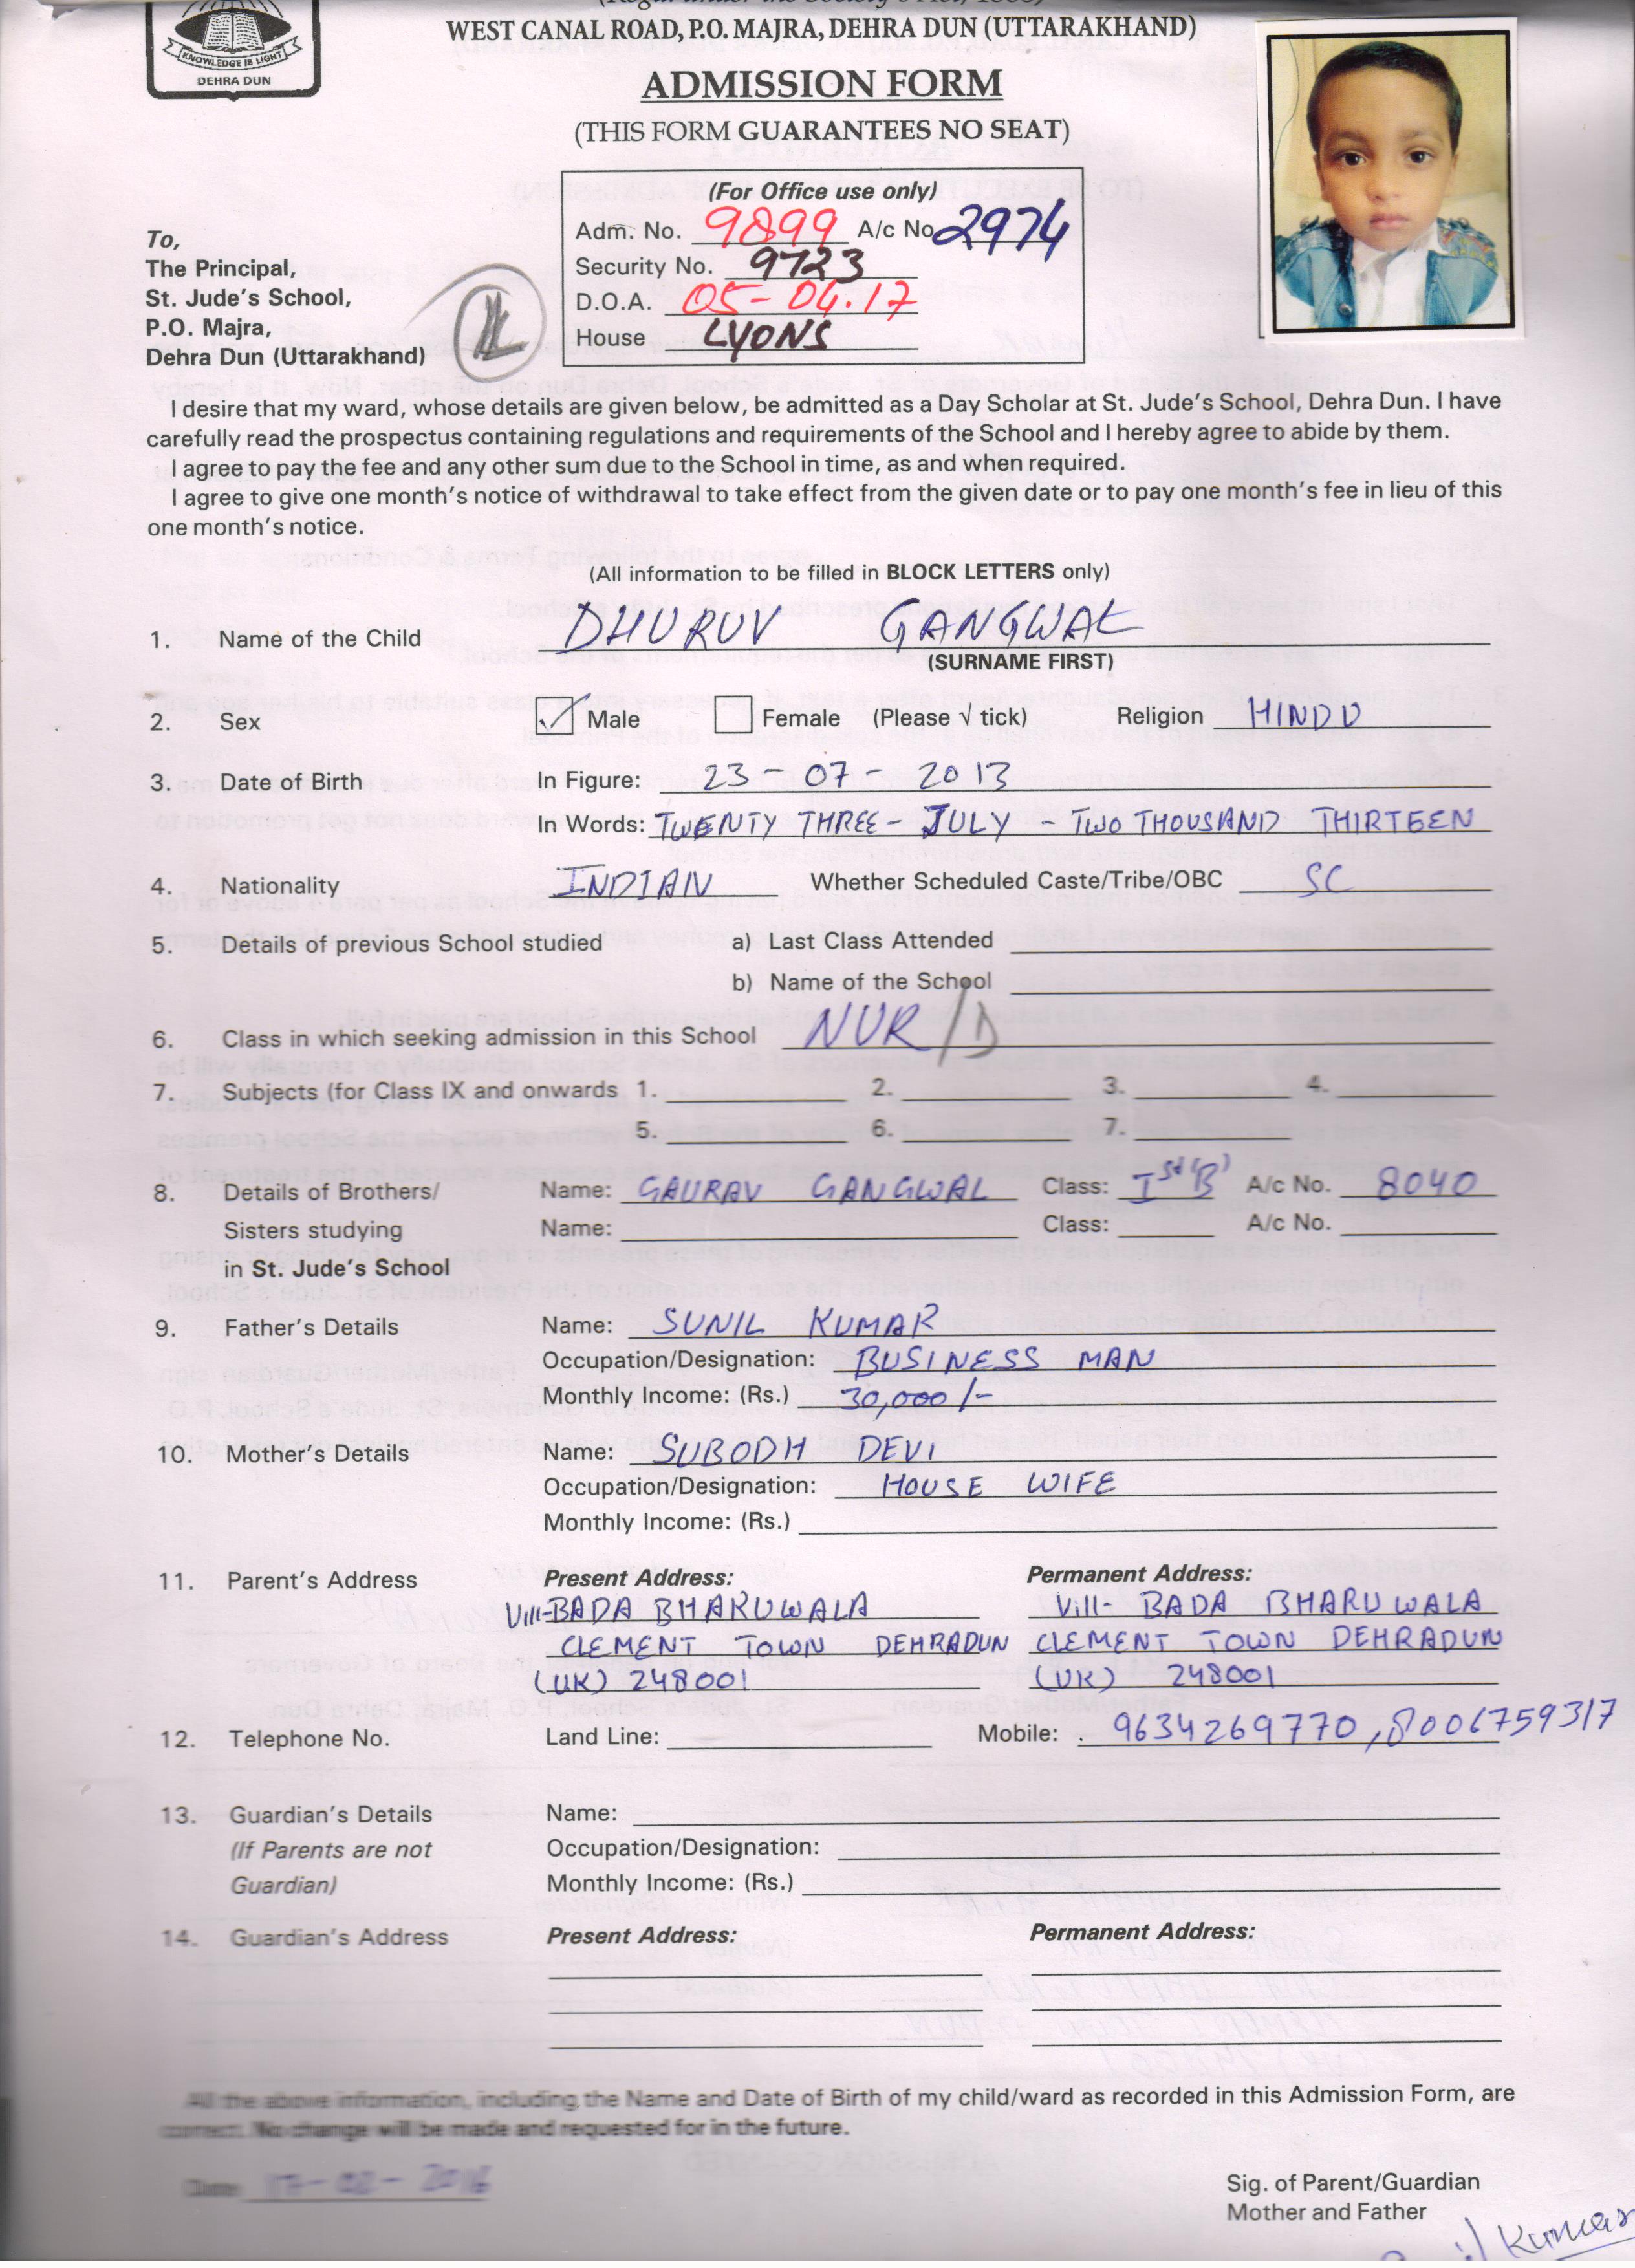 KNOWLEDGE IS LIGHT
DEHRA DUN
WEST CANAL ROAD, P.O. MAJRA, DEHRA DUN (UTTARAKHAND)
ADMISSION FORM
(THIS FORM GUARANTEES NO SEAT)
(For Office use only)
Adm. No. 9899 A/c No. 2974
Security No. 9723
D.O.A. 05-04.17
House LYONS
To,
The Principal,
St. Jude's School,
P.O. Majra,
Dehra Dun (Uttarakhand)
I desire that my ward, whose details are given below, be admitted as a Day Scholar at St. Jude's School, Dehra Dun. I have
carefully read the prospectus containing regulations and requirements of the School and I hereby agree to abide by them.
I agree to pay the fee and any other sum due to the School in time, as and when required.
I agree to give one month's notice of withdrawal to take effect from the given date or to pay one month's fee in lieu of this
one month's notice.
(All information to be filled in BLOCK LETTERS only)
1. Name of the Child DHURUV GANGWAL
(SURNAME FIRST)
2. Sex ✓ Male Female (Please √ tick) Religion HINDU
3. Date of Birth In Figure: 23-07-2013
In Words: TWENTY THREE - JULY - TWO THOUSAND THIRTEEN
4. Nationality INDIAN Whether Scheduled Caste/Tribe/OBC SC
5. Details of previous School studied a) Last Class Attended
b) Name of the School
6. Class in which seeking admission in this School NUR/D
7. Subjects (for Class IX and onwards 1. 2. 3. 4.
5. 6. 7.
8. Details of Brothers/ Name: GAURAV GANGWAL Class: Ist 'B' A/c No. 8040
Sisters studying Name: Class: A/c No.
in St. Jude's School
9. Father's Details Name: SUNIL KUMAR
Occupation/Designation: BUSINESS MAN
Monthly Income: (Rs.) 30,000/-
10. Mother's Details Name: SUBODH DEVI
Occupation/Designation: HOUSE WIFE
Monthly Income: (Rs.)
11. Parent's Address Present Address: Permanent Address:
Vill-BADA BHARUWALA Vill- BADA BHARUWALA
CLEMENT TOWN DEHRADUN CLEMENT TOWN DEHRADUN
(UK) 248001 (UK) 248001
12. Telephone No. Land Line: Mobile: 9634269770, 8006759317
13. Guardian's Details Name:
(If Parents are not Occupation/Designation:
Guardian) Monthly Income: (Rs.)
14. Guardian's Address Present Address: Permanent Address:
All the above information, including the Name and Date of Birth of my child/ward as recorded in this Admission Form, are
correct. No change will be made and requested for in the future.
Date 2016
Sig. of Parent/Guardian
Mother and Father
Kumar